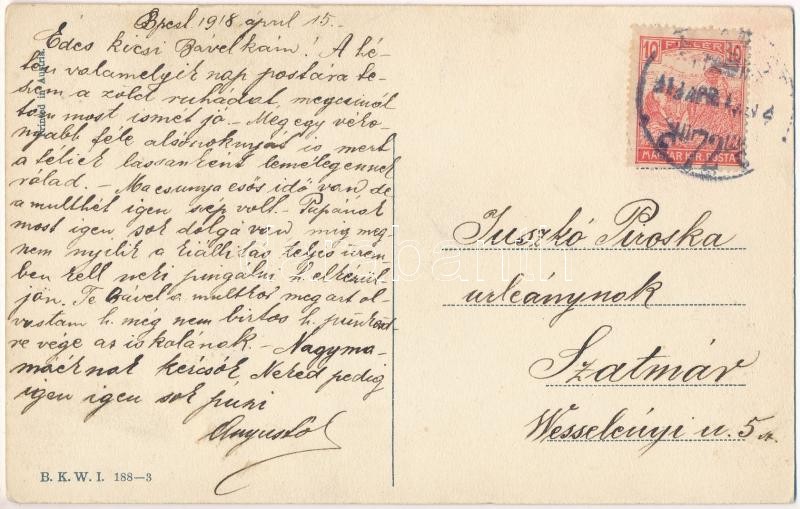 Bpest 1918 április 15.
Édes kicsi Bávelkám! A hé-
ten valamelyik nap postára te-
szem a zöld ruhádat, megcsinál-
tam most ismét jó. Meg egy véko-
nyabb féle alsószoknyát is mert
a télick lassanként lemelegennek
rólad. - Ma csunya esős idő van de
a mult hét igen szép volt. - Papának
most igen sok dolga van mig meg
nem nyilik a kiállitás teljes üzem-
ben kell neki pingálni h. elkészül-
jön. Te Bável a multkor megart ol-
vastam h. még nem biztos h. pünkösd-
re vége az iskolának. - Nagyma-
mácknak kézcsók, Neked pedig
igen igen sok puszi
Augusta
Printed in Austria
B. K. W. I. 188—3
10 FILLÉR 10
MAGYAR KIR. POSTA
918 APR
Juszkó Piroska
urleánynok
Szatmár
Wesselényi u. 5 sz.